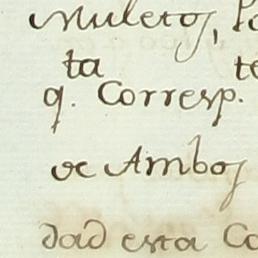 Muletos, Po
ta te
q. Corresp.
de Ambos
dad esta Co